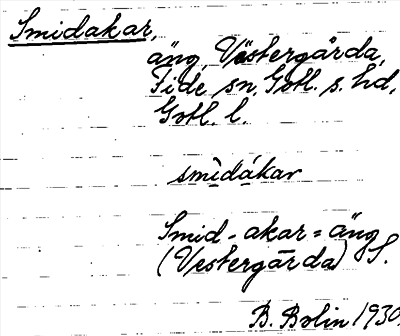 Smidakar,
äng, Västergårda,
Fide sn. Gotl. s. hd,
Gotl. l.
smìdákar
Smid-akar = äng
(Vestergårda) S.
B. Bolin 1930.